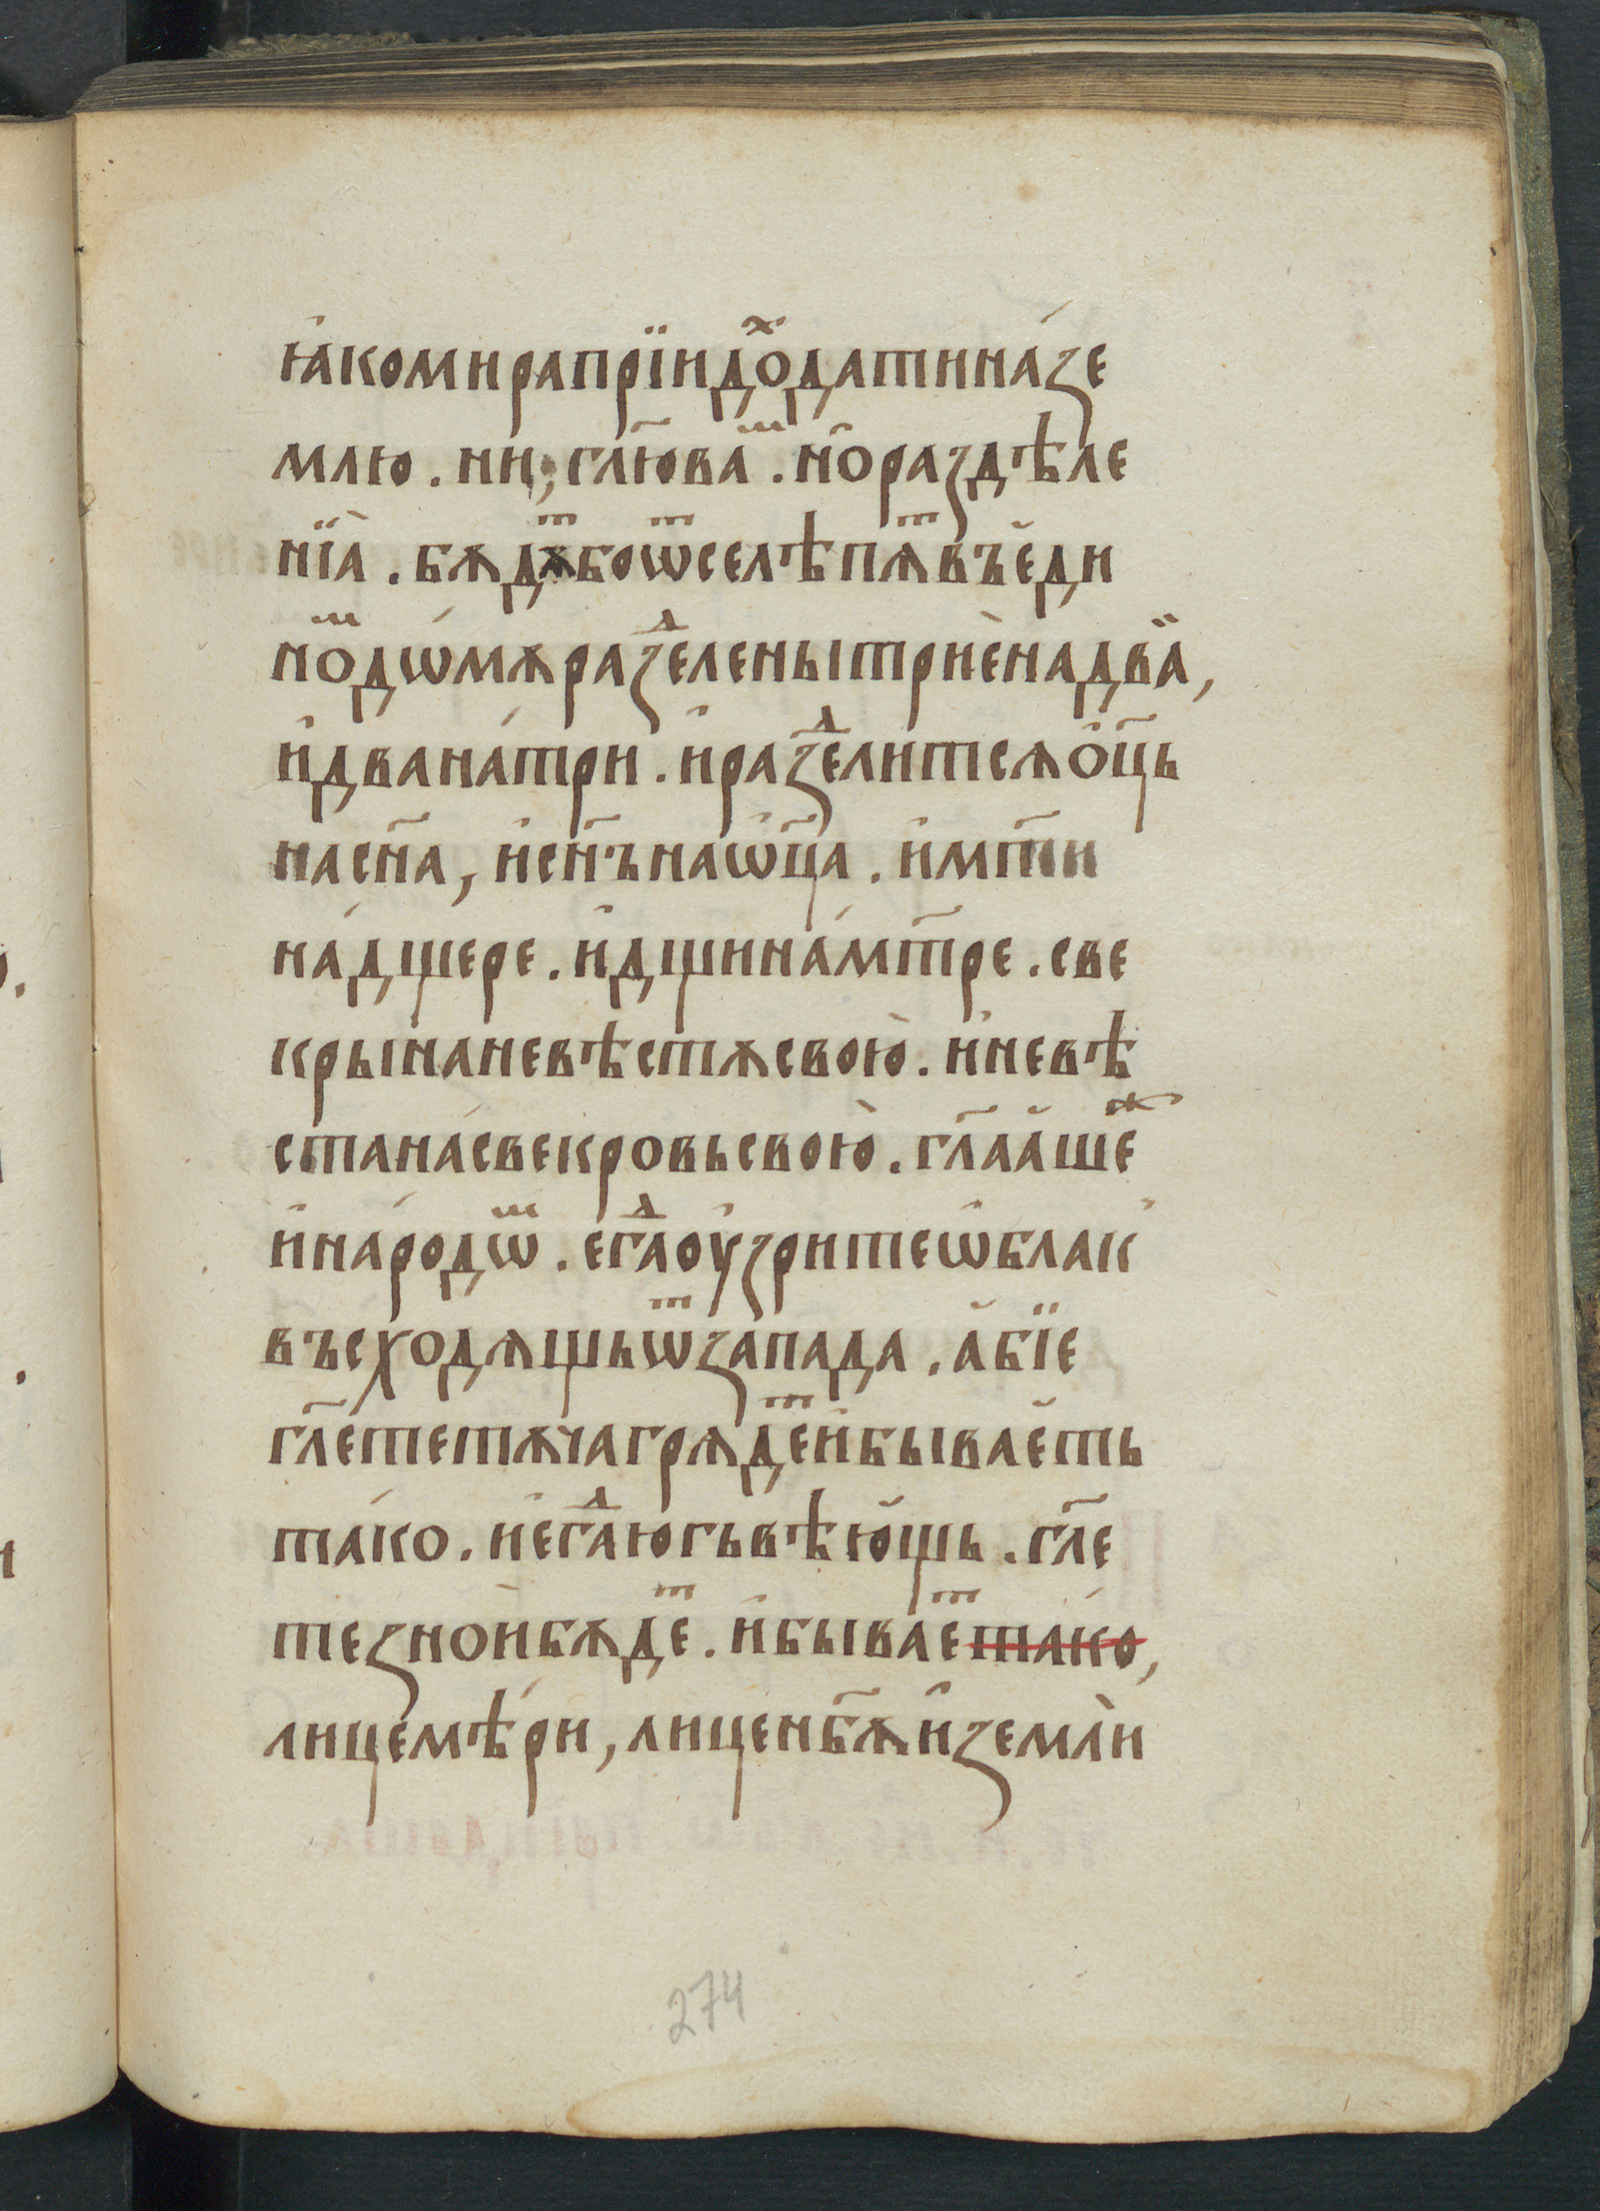 ꙗ҆комирапрїидо́ⷯдатинáзе
млю. ни, гл҃юваⷨ. но҆раздѣле
нїа̀. бѫдѫⷮбоѿселѣпѧⷮвъе҆ди
ноⷨдѡ́мѫразⷣеленытрїѐнадва̀,
и҆дванáтри. и҆разⷣелитсѧѻ҆ц҃ь
насн҃а, и҆сн҃ънаѡ҆ц҃а. и҆мт҃и
нáдщере. и҆дщинáмт҃ре. све
крынаневѣстѫсвою̀. и҆невѣ
станáсвекровьсвою̀. гл҃аа҆шеⷤ
и҆нарóдѡⷨ. егⷣаоу҆зритеѡ҆блак
въсходѧщьѿзáпада. а҆бїе
гл҃ететѫчагрѧдеⷮи҆бывае҆ть
тáко. и҆егⷣаюгьвѣю҆щь. гл҃е
тезно́ибѫдеⷮ. и҆бывае҆ⷮтáко,
лицемѣ́ри, лиценб҃ѫи҆землѝ
274